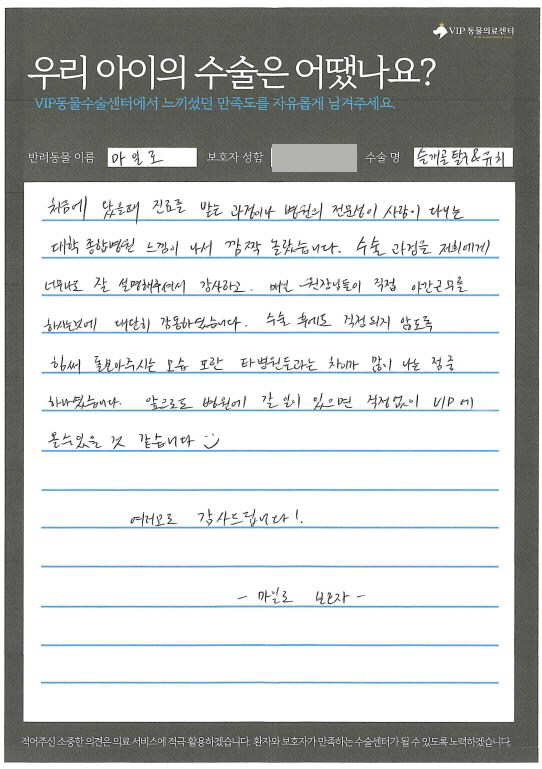 VIP 동물의료센터
우리 아이의 수술은 어땠나요?
VIP동물수술센터에서 느끼셨던 만족도를 자유롭게 남겨주세요.
반려동물 이름 마일로 보호자 성함 수술 명 슬개골탈구&유치
처음에 왔을때 진료를 받는 과정이나 병원의 전문성이 사람이 다니는
대학 종합병원 느낌이 나서 깜짝 놀랐습니다. 수술 과정을 저희에게
너무나도 잘 설명해주셔서 감사하고. 매번 원장님들이 직접 야간근무를
하시는것에 대단히 감동하였습니다. 수술 후에도 걱정되지 않도록
힘써 돌보아주시는 모습 또한 타병원들과는 차이가 많이 나는 점중
하나였습니다. 앞으로도 병원에 갈일이 있으면 걱정없이 VIP에
올수있을 것 같습니다
여러모로 감사드립니다!.
- 마일로 보호자 -
적어주신 소중한 의견은 의료 서비스에 적극 활용하겠습니다. 환자와 보호자가 만족하는 수술센터가 될 수 있도록 노력하겠습니다.